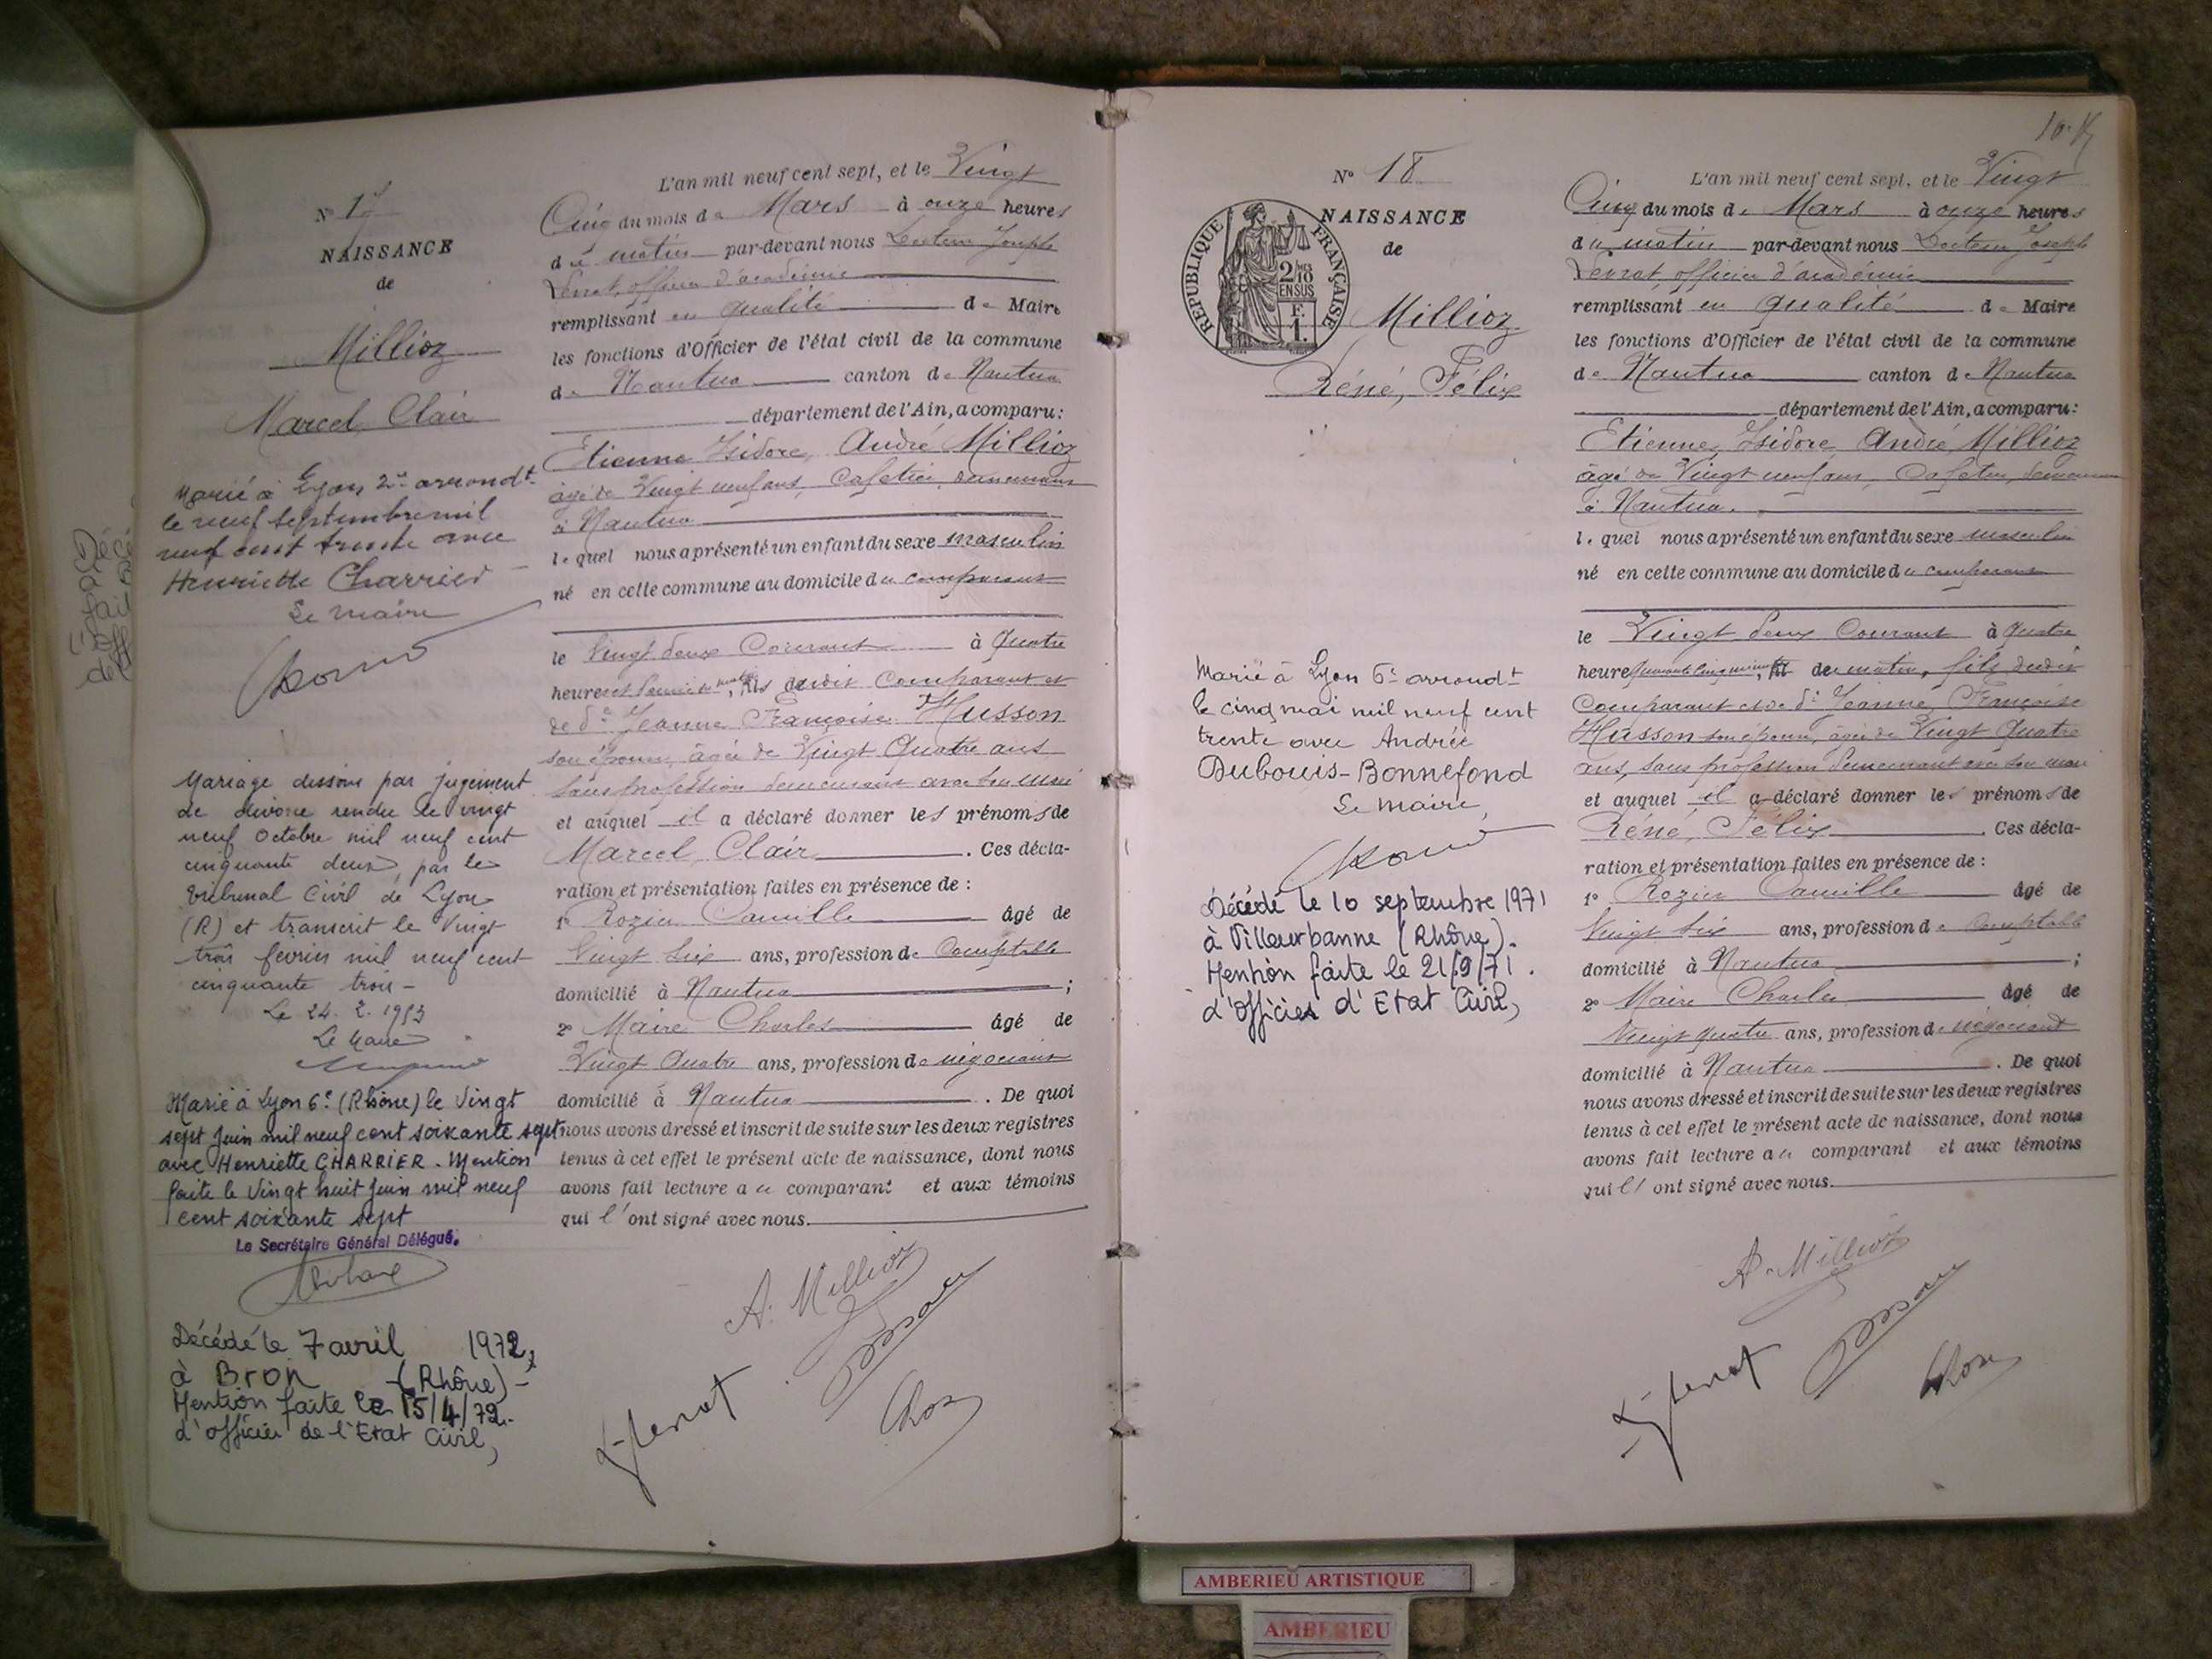 N° 17
NAISSANCE
de
Millioz
Marcel Clair
Marié à Lyon 2me arrondt
le neuf septembre mil
neuf cent trente avec
Henriette Charrier
Le maire
Mariage dissous par jugement
de divorce rendu le vingt
neuf Octobre mil neuf cent
cinquante deux par le
tribunal Civil de Lyon
(R) et transcrit le Vingt
trois février mil neuf cent
cinquante trois -
Le 24. 2. 1953
Le Maire
Marié à Lyon 6e (Rhône) le Vingt
sept Juin mil neuf cent soixante sept
avec Henriette CHARRIER. Mention
faite le Vingt huit Juin mil neuf
cent soixante sept
Le Secrétaire Général Délégué.
Décédé le 7 avril 1972,
à Bron (Rhône) -
Mention faite le 15/4/72.
d'officier de l'Etat Civil,
L'an mil neuf cent sept, et le Vingt
Cinq du mois de Mars à onze heures
du matin par-devant nous Docteur Joseph
officier d'académie
remplissant en qualité de Maire
les fonctions d'Officier de l'état civil de la commune
de Nantua canton de Nantua
département de l'Ain, a comparu:
Etienne Isidore, André Millioz
âgé de Vingt neuf ans, Cafetier, demeurant
à Nantua
lequel nous a présenté un enfant du sexe masculin
né en cette commune au domicile du comparant
le Vingt deux Courant à Quatre
heures et demie du matin, fils dudit Comparant et
de de Jeanne Françoise Husson
son épouse, âgée de Vingt Quatre ans
sans profession demeurant avec son mari
et auquel il a déclaré donner les prénoms de
Marcel Clair. Ces décla-
ration et présentation faites en présence de :
1° Rozier Camille âgé de
Vingt Six ans, profession de Comptable
domicilié à Nantua ;
2° Maire Charles âgé de
Vingt Quatre ans, profession de négociant
domicilié à Nantua. De quoi
nous avons dressé et inscrit de suite sur les deux registres
tenus à cet effet le présent acte de naissance, dont nous
avons fait lecture au comparant et aux témoins
qui l'ont signé avec nous.
A. Millioz
N° 18
NAISSANCE
de
RÉPUBLIQUE FRANÇAISE
2/10mes
EN SUS
F.
1.
Millioz
Réné, Félix
Marié à Lyon 6e arrondt
le cinq mai mil neuf cent
trente avec Andrée
Dubouis-Bonnefond
Le maire,
Décédé le 10 septembre 1971
à Villeurbanne (Rhône).
Mention faite le 21/9/71.
d'officier d'Etat Civil,
L'an mil neuf cent sept, et le Vingt
Cinq du mois de Mars à onze heures
du matin par-devant nous Docteur Joseph
officier d'académie
remplissant en qualité de Maire
les fonctions d'Officier de l'état civil de la commune
de Nantua canton de Nantua
département de l'Ain, a comparu:
Etienne, Isidore, André Millioz
âgé de Vingt neuf ans, Cafetier, demeurant
à Nantua.
lequel nous a présenté un enfant du sexe masculin
né en cette commune au domicile du comparant
le Vingt deux Courant à Quatre
heures quarante cinq minutes, du matin, fils dudit
Comparant et de de Jeanne, Françoise
Husson son épouse, âgée de Vingt Quatre
ans, sans profession demeurant avec son mari
et auquel il a déclaré donner les prénoms de
Réné, Félix. Ces décla-
ration et présentation faites en présence de :
1° Rozier Camille âgé de
Vingt Six ans, profession de Comptable
domicilié à Nantua ;
2° Maire Charles âgé de
Vingt quatre ans, profession de négociant
domicilié à Nantua. De quoi
nous avons dressé et inscrit de suite sur les deux registres
tenus à cet effet le présent acte de naissance, dont nous
avons fait lecture au comparant et aux témoins
qui l'ont signé avec nous.
A. Millioz
AMBERIEU ARTISTIQUE
AMBERIEU